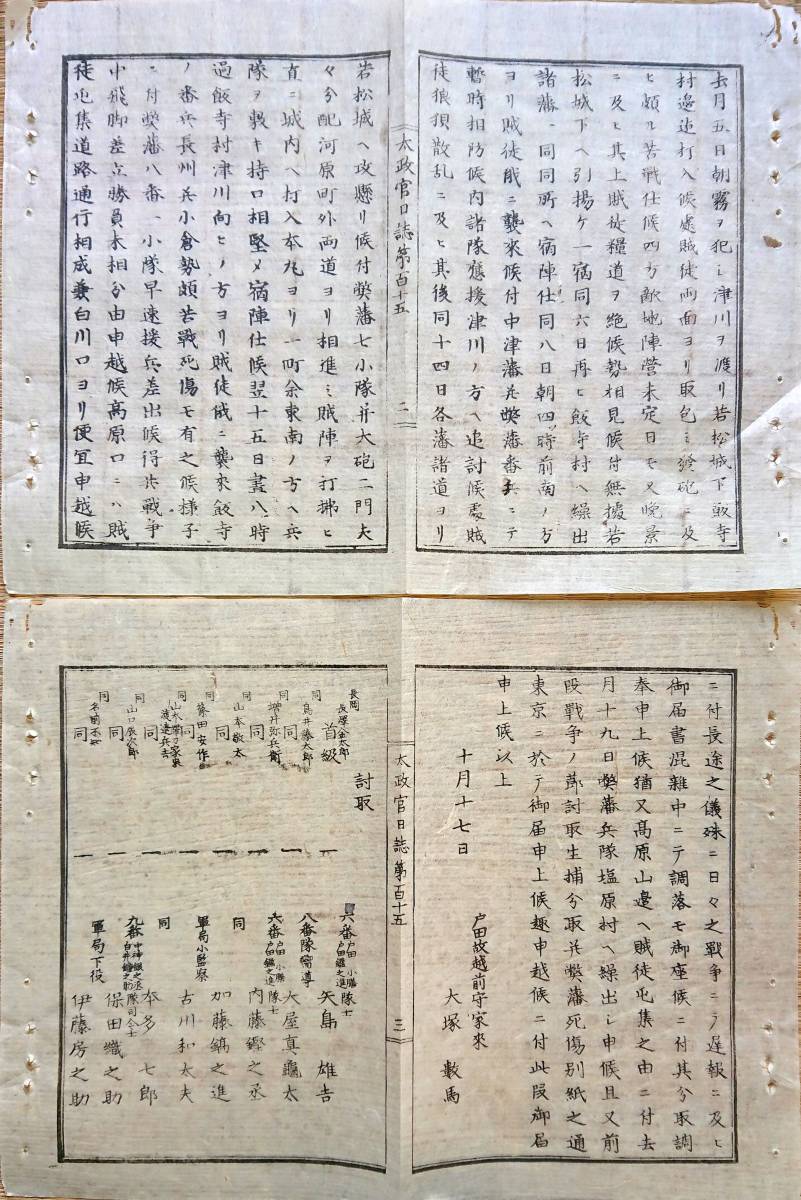 去月五日朝霧ヲ犯シ津川ヲ渡リ若松城下飯寺
村邊迄打入候處賊徒両面ヨリ取包ミ發砲ニ及
ヒ頗ル苦戰仕候四方敵地陣營未定日モ又晩景
ニ及ヒ其上賊徒糧道ヲ絶候勢相見候付無據若
松城下ヘ引揚ケ一宿同六日再ヒ飯寺村ヘ繰出
諸藩一同同所ヘ宿陣仕同八日朝四ツ時前南ノ方
ヨリ賊徒俄ニ襲來候付中津藩并弊藩番兵ニテ
暫時相防候内諸隊應援津川ノ方ヘ追討候處賊
徒狼狽散乱ニ及ヒ其後同十四日各藩諸道ヨリ
太政官日誌第百十五
二
若松城ヘ攻懸リ候付弊藩七小隊并大砲二門夫
々分配河原町外両道ヨリ相進ミ賊陣ヲ打拂ヒ
直ニ城内ヘ打入本丸ヨリ一町余東南ノ方ヘ兵
隊ヲ敷キ持口相堅メ宿陣仕候翌十五日晝八時
過飯寺村津川向ヒノ方ヨリ賊徒俄ニ襲來飯寺
ノ番兵長州兵小倉勢頗苦戰死傷モ有之候様子
ニ付弊藩八番一小隊早速援兵差出候得共戰争
中飛脚差立勝負未相分由申越候高原口ニハ賊
徒屯集道路通行相成兼白川口ヨリ便宜申越候
ニ付長途之儀殊ニ日々之戰争ニテ遅報ニ及ヒ
御届書混雑中ニテ調落モ御座候ニ付其分取調
奉申上候猶又高原山邊ヘ賊徒屯集之由ニ付去
月十九日弊藩兵隊塩原村ヘ繰出シ申候且又前
段戰争ノ節討取生捕分取并弊藩死傷別紙之通
東京ニ於テ御届申上候趣申越候ニ付此段御届
申上候以上
十月十七日
戸田故越前守家來
大塚數馬
太政官日誌第百十五
三
討取
長岡
首級 一
六番 隊士
矢島雄吉
同
同 一
八番隊嚮導
大屋真
同
同 一
六番 隊士
内藤鏗之丞
同
山本敬太
同 一
同
加藤鎬之進
同
藤田安作
同 一
軍局小監察
古川和太夫
同
同 一
同
本多七郎
同
山口辰次郎
同 一
九番 隊司令士
保田織之助
同
同 一
軍局下役
伊藤房之助